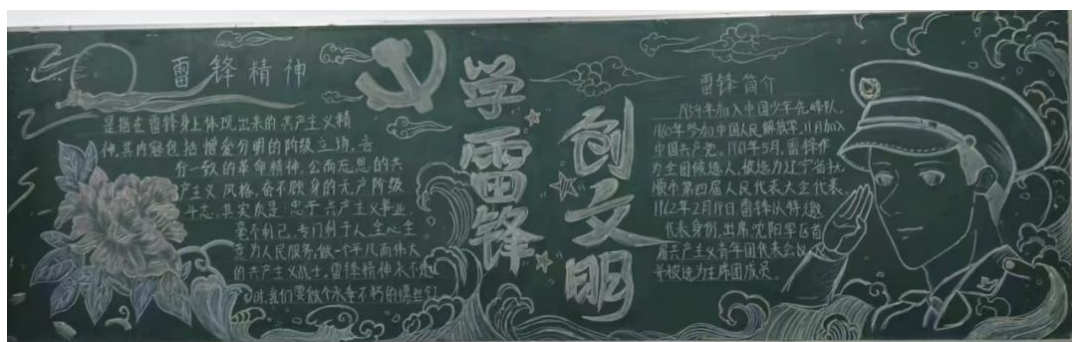 雷锋精神
是指在雷锋身上体现出来的共产主义精
神,其内容包括憎爱分明的阶级立场,言
行一致的革命精神,公而忘思的共
产主义风格,奋不顾身的无产阶级
斗志,其实质是忠于共产主义事业,
毫不利己,专门利于人,全心全
意为人民服务,做一个平凡而伟大
的共产主义战士,雷锋精神永不
我们要做个永垂不朽的螺丝钉
学雷锋
创文明
雷锋简介
1954年加入中国少年先峰队,
1960年参加中国人民解放军,11月加入
中国共产党。1961年5月,雷锋作
为主团候选人,被选为辽宁省抚
顺市第四届人民代表大会代表
1962年2月19日,雷锋以特邀
代表身份,出席沈阳军区首
届共产主义青年团代表会议,
并被选为主席团成员。